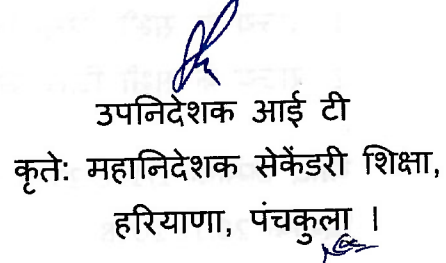 उपनिदेशक आई टी
कृते: महानिदेशक सेकेंडरी शिक्षा,
हरियाणा, पंचकुला ।